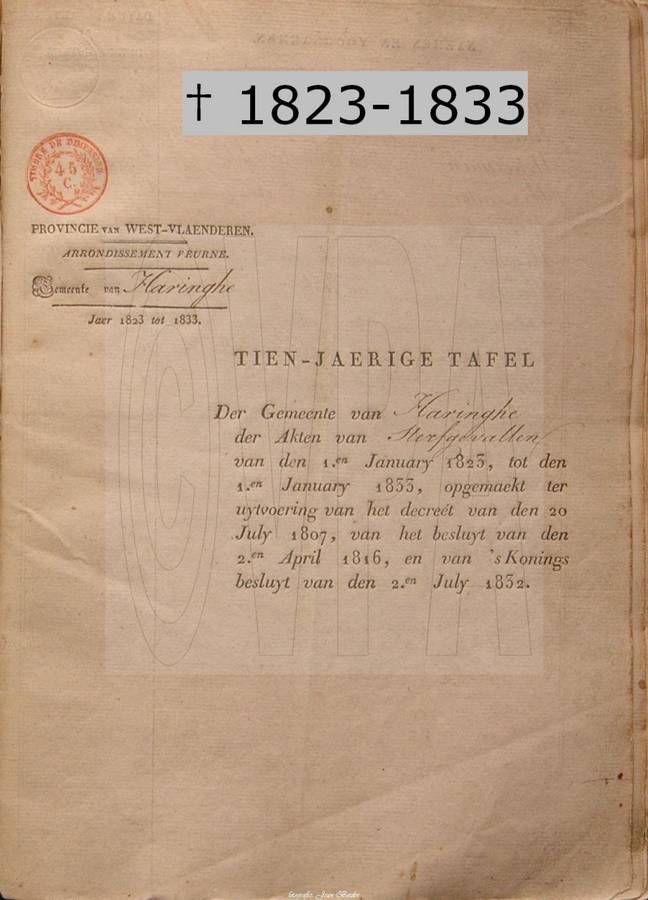 † 1823-1833
TIMBRE DE DIMENSION
45
C.
PROVINCIE VAN WEST-VLAENDEREN.
ARRONDISSEMENT VEURNE.
Gemeente van Haringhe
Jaer 1823 tot 1833.
TIEN-JAERIGE TAFEL
Der Gemeente van Haringhe
der Akten van Sterfgevallen
van den 1.en January 1823, tot den
1.en January 1833, opgemaekt ter
uytvoering van het decreét van den 20
July 1807, van het besluyt van den
2.en April 1816, en van 's Konings
besluyt van den 2.en July 1832.
©VPA